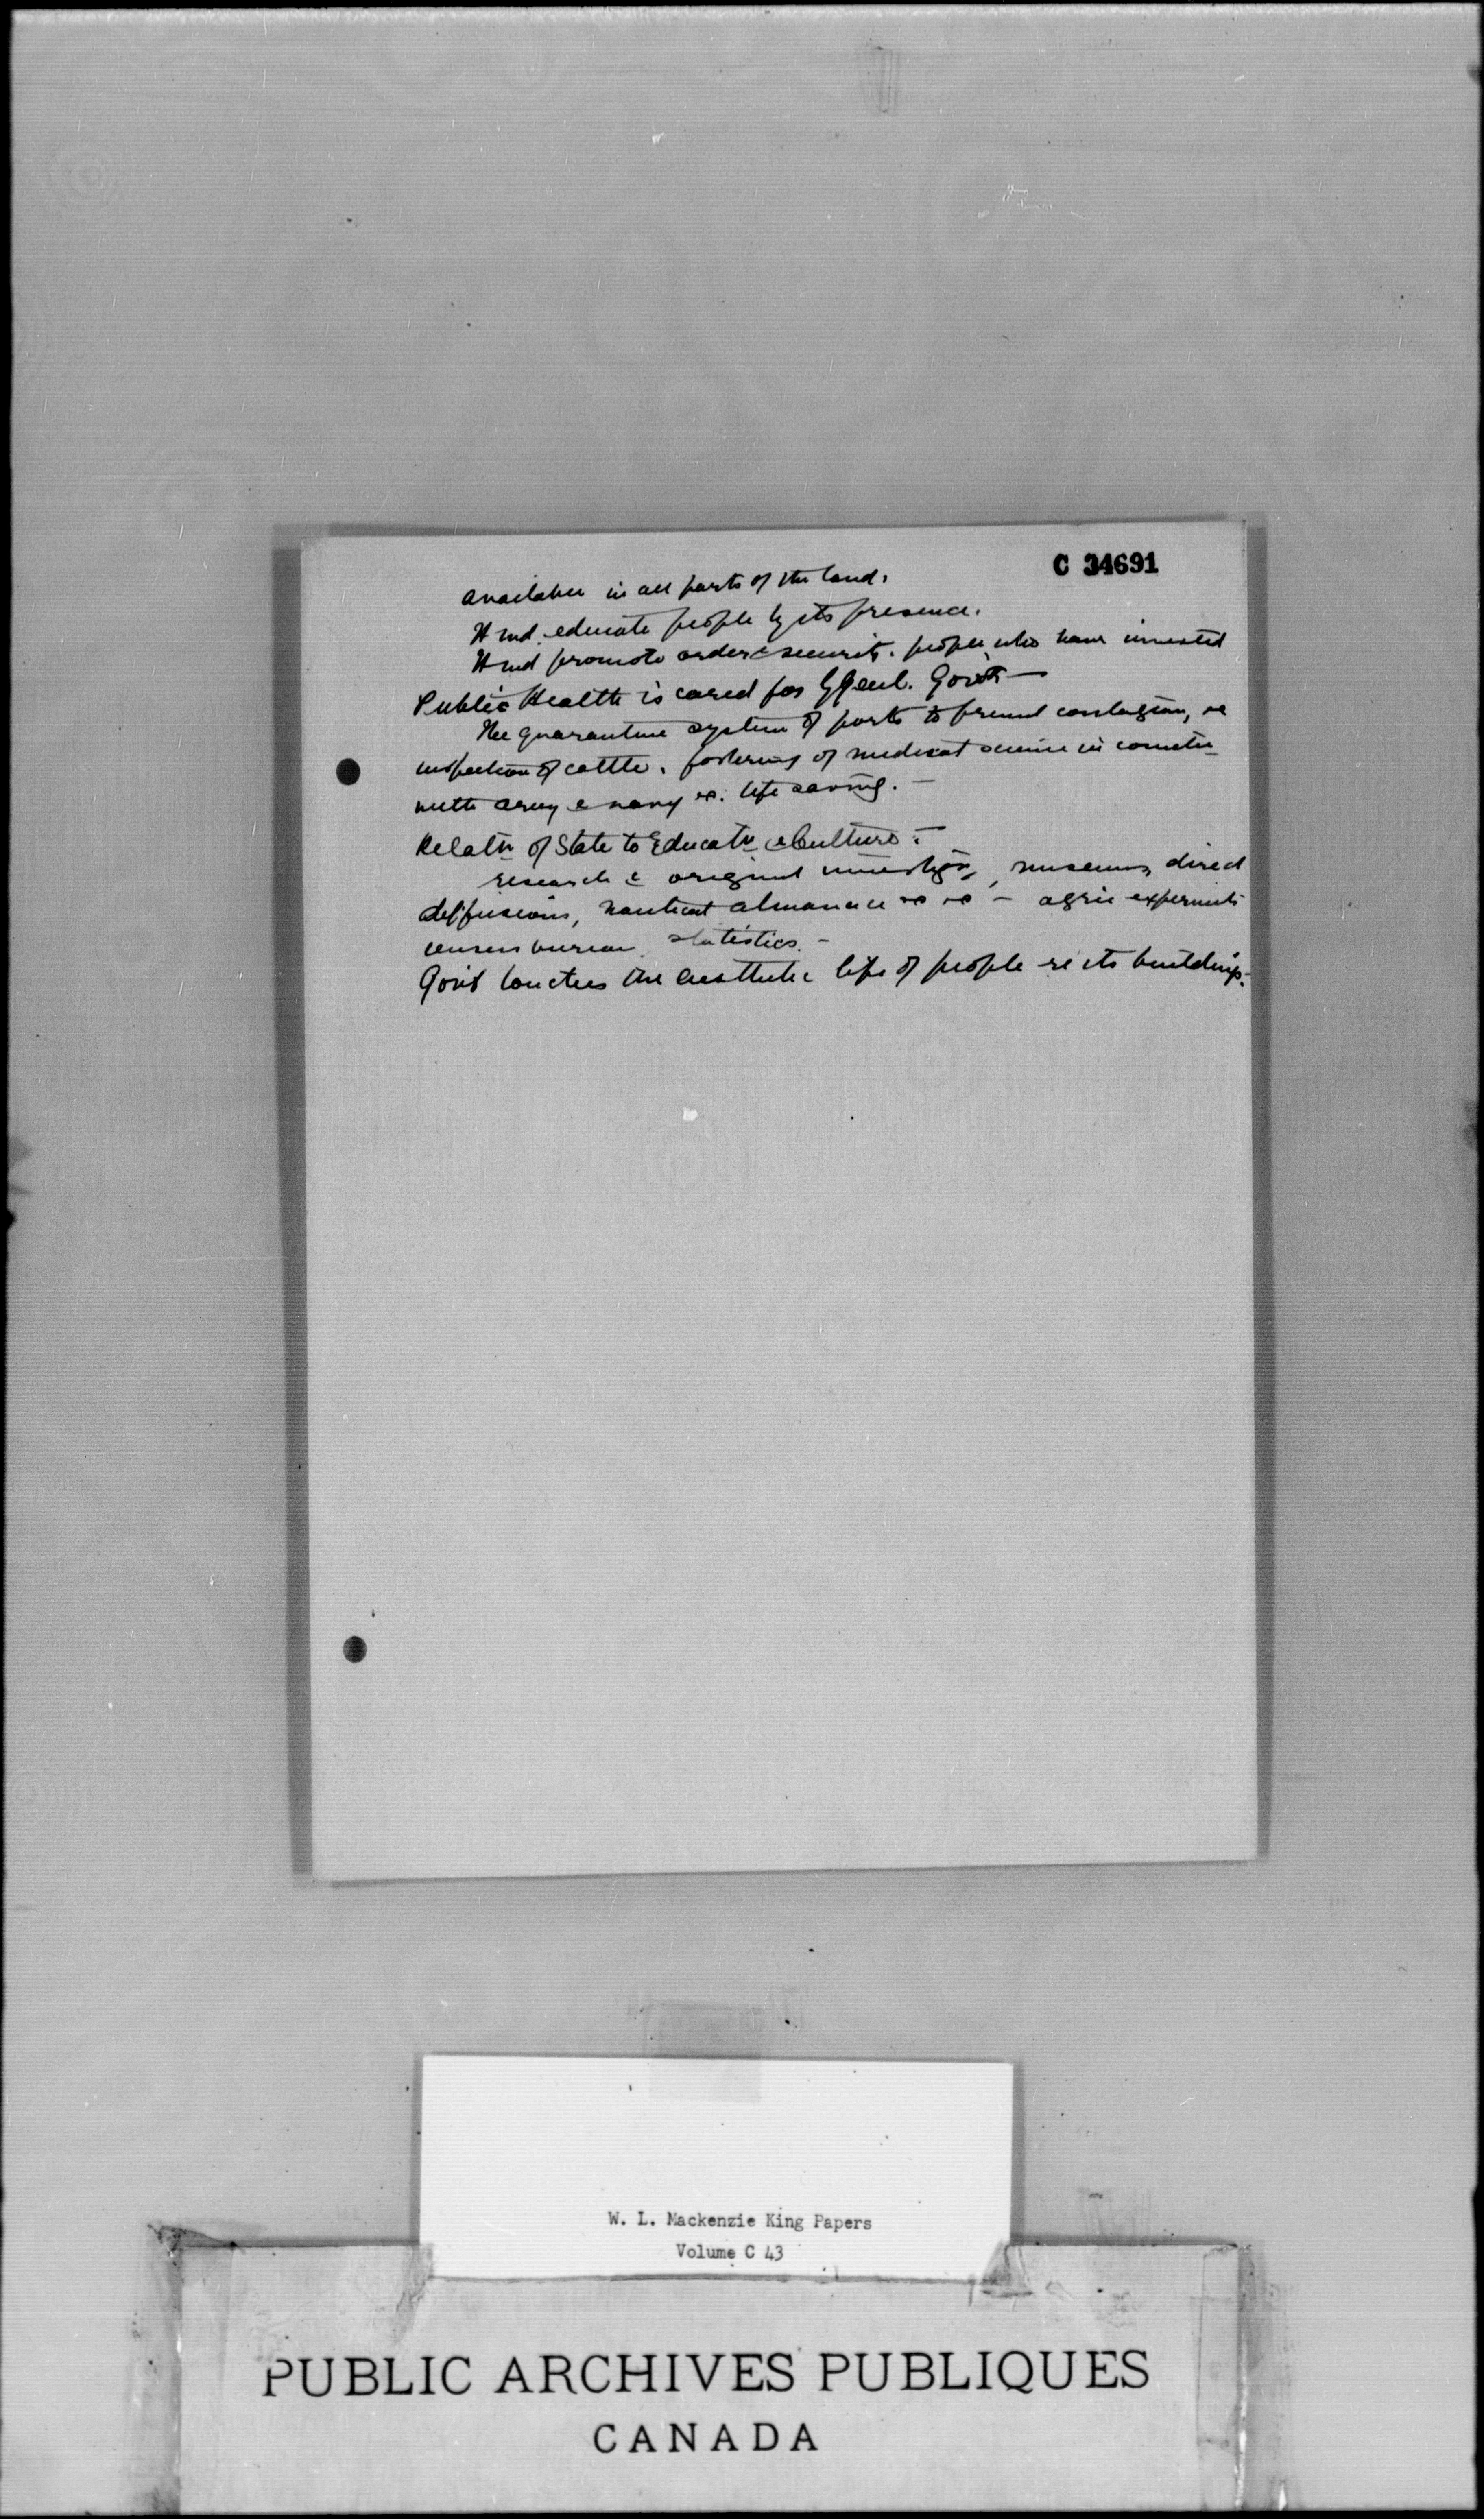 C 34691
available in all parts of the land.
It wd. educate people by its presence.
It wd promote order & security. people who have invested
Public Health is cared for by Genl. Govt —
The quarantine system of ports to prevent contagion, re
inspection of cattle. fostering of medical science in connectn
with army & navy re. life saving. —
Relatn of State to Educatn & Culture: —
research & original investigns, museums, direct
diffusion, nautical almanac — agric experiments
census bureau statistics. —
Govt touches the aesthetic life of people re its buildings. —
W. L. Mackenzie King Papers
Volume C 43
PUBLIC ARCHIVES PUBLIQUES
CANADA